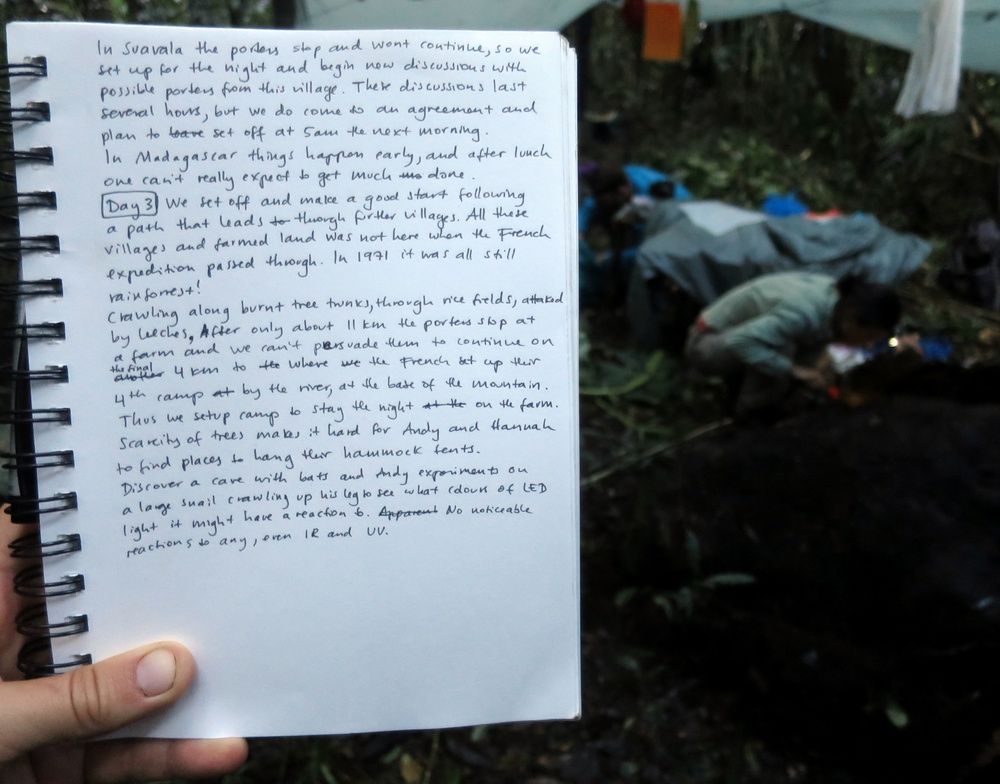 In Suavala the porters stop and wont continue, so we
set up for the night and begin new discussions with
possible porters from this village. These discussions last
several hours, but we do come to an agreement and
plan to leave set off at 5am the next morning.
In Madagascar things happen early, and after lunch
one can't really expect to get much done.
Day 3 We set off and make a good start following
a path that leads to through further villages. All these
villages and farmed land was not here when the French
expedition passed through. In 1971 it was all still
rainforrest!
Crawling along burnt tree trunks, through rice fields, attacked
by leeches, After only about 11 km the porters stop at
a farm and we can't persuade them to continue on
another the final 4 km to the where we the French set up their
4th camp at by the river, at the base of the mountain.
Thus we setup camp to stay the night at the on the farm.
Scarcity of trees makes it hard for Andy and Hannah
to find places to hang their hammock tents.
Discover a cave with bats and Andy experiments on
a large snail crawling up his leg to see what colours of LED
light it might have a reaction to. Apparent No noticeable
reactions to any, even IR and UV.